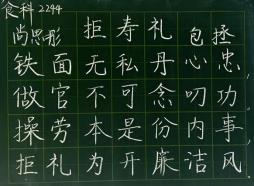 食科2244
尚思彤 拒寿礼 包拯
铁面无私丹心忠
做官不可念叨功
操劳本是份内事
拒礼为开廉洁风